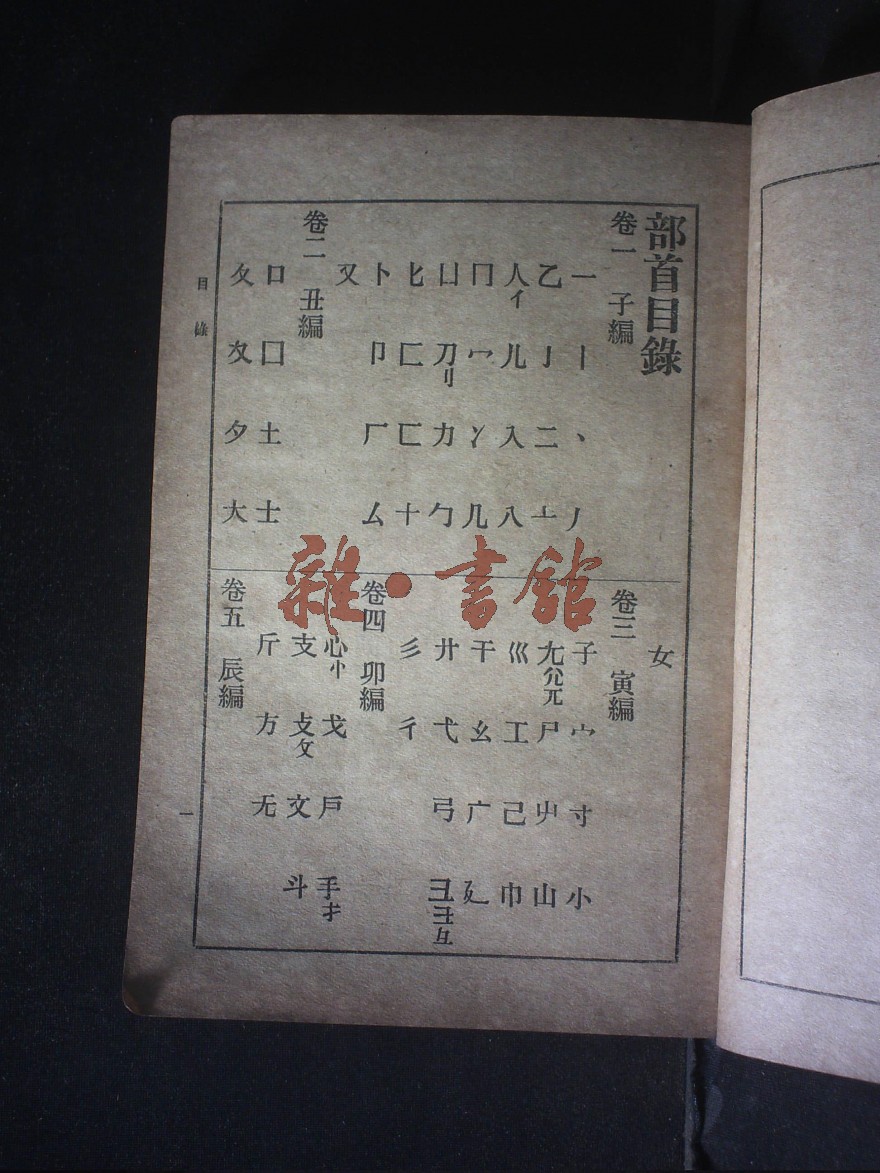 部首目錄
卷一 子編
一 丨 丶 丿
乙 亅 二 亠
人亻 儿 入 八
冂 冖 冫 几
凵 刀刂 力 勹
匕 匚 匸 十
卜 卩 厂 厶
又
卷二 丑編
口 囗 土 士
夂 夊 夕 大
女
卷三 寅編
子 宀 寸 小
尢尣兀 尸 屮 山
巛 工 己 巾
干 幺 广 廴
廾 弋 弓 彐⺕彑
彡 彳
卷四 卯編
心忄 戈 戶 手扌
支 攴攵 文 斗
斤 方 无
卷五 辰編
目錄
一
雜·書館